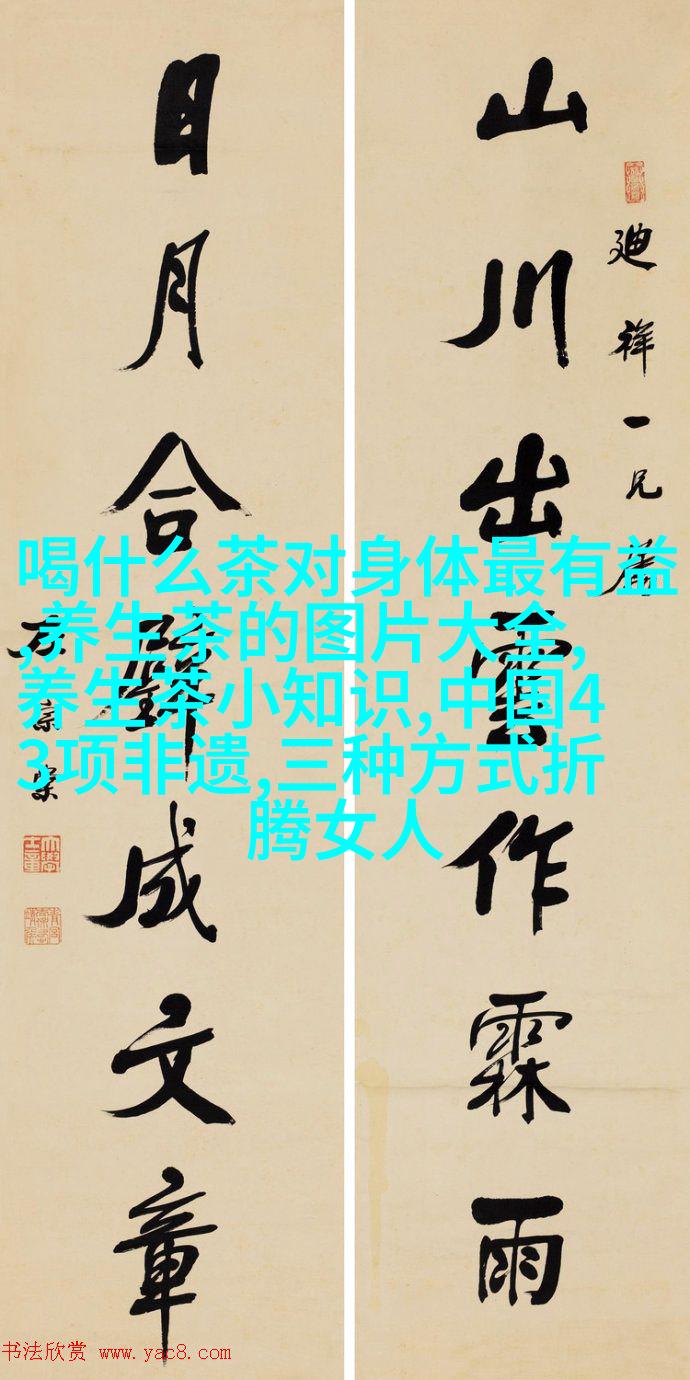 廸祥一兄
山川出雲作霖雨
日月合璧成文章
左宗棠
喝什么茶对身体最有益
,养生茶的图片大全,
养生茶小知识,中国4
3项非遗,三种方式折
腾女人
书法欣赏 www.yac8.com